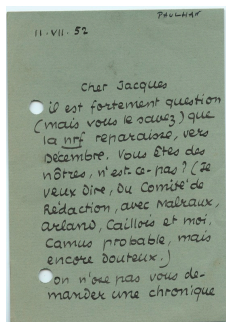 PAULHAN
11·VII·52
Cher Jacques
il est fortement question
(mais vous le savez) que
la nrf reparaisse, vers
Décembre. Vous Êtes des
nôtres, n'est-ce-pas? (Je
veux Dire, Du Comité de
Rédaction, avec Malraux,
Arland, Caillois et moi.
Camus probable, mais
encore Douteux.)
on n'ose pas vous de-
mander une chronique